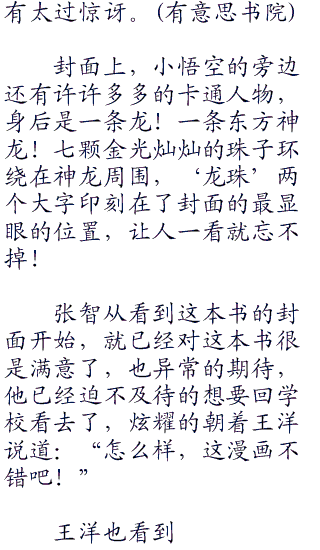 有太过惊讶。(有意思书院)
封面上，小悟空的旁边
还有许许多多的卡通人物，
身后是一条龙！一条东方神
龙！七颗金光灿灿的珠子环
绕在神龙周围，‘龙珠’两
个大字印刻在了封面的最显
眼的位置，让人一看就忘不
掉！
张智从看到这本书的封
面开始，就已经对这本书很
是满意了，也异常的期待，
他已经迫不及待的想要回学
校看去了，炫耀的朝着王洋
说道：“怎么样，这漫画不
错吧！”
王洋也看到